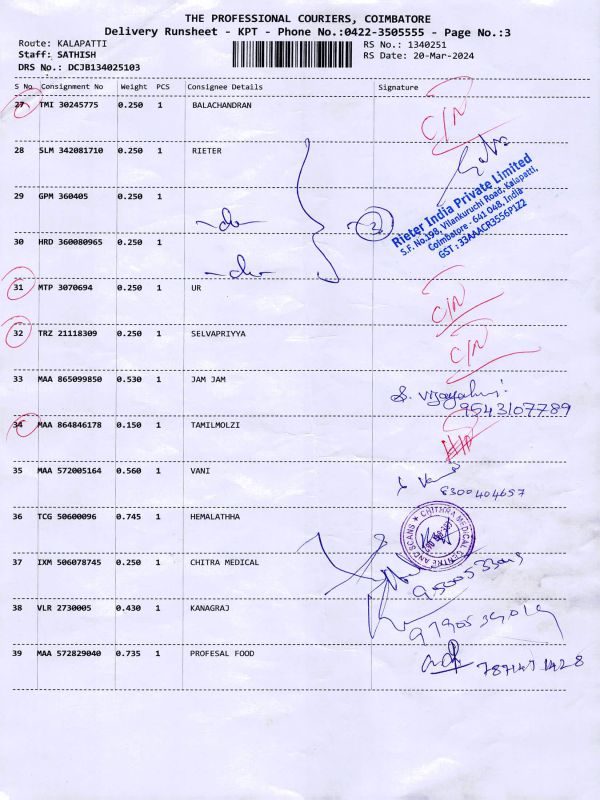 THE PROFESSIONAL COURIERS, COIMBATORE
Delivery Runsheet - KPT - Phone No.:0422-3505555 - Page No.:3
Route: KALAPATTI
RS No.: 1340251
Staff: SATHISH
RS Date: 20-Mar-2024
DRS No.: DCJB134025103
S No Consignment No Weight PCS Consignee Details Signature
27 TMI 30245775 0.250 1 BALACHANDRAN
C/N
28 SLM 342081710 0.250 1 RIETER
Rieter India Private Limited
S.F. No.198, Vilankuruchi Road, Kalapatti,
Coimbatore - 641 048, India
GST : 33AAACR3556P1Z2
29 GPM 360405 0.250 1
-do-
3
30 HRD 360080965 0.250 1
-do-
31 MTP 3070694 0.250 1 UR
C/N
32 TRZ 21118309 0.250 1 SELVAPRIYYA
C/N
33 MAA 865099850 0.530 1 JAM JAM
9543107789
34 MAA 864846178 0.150 1 TAMILMOLZI
35 MAA 572005164 0.560 1 VANI
8300404657
36 TCG 50600096 0.745 1 HEMALATHHA
CHITHRA MEDICAL CENTRE AND SCANS
37 IXM 506078745 0.250 1 CHITRA MEDICAL
38 VLR 2730005 0.430 1 KANAGRAJ
39 MAA 572829040 0.735 1 PROFESAL FOOD